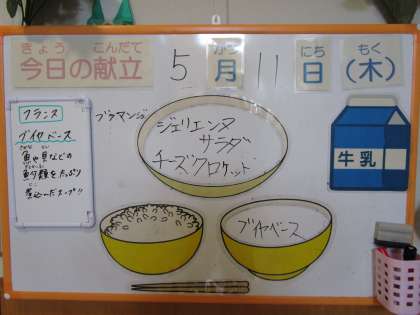 きょう こんだて
今日の献立
5月11日(木)
がつ にち もく
ブラマンジェ
ジュリエンヌ
サラダ
チーズクロケット
牛乳
フランス
ブイヤベース
魚や貝などの
魚介類をたっぷり
煮込んだスープ!!
ブイヤベース